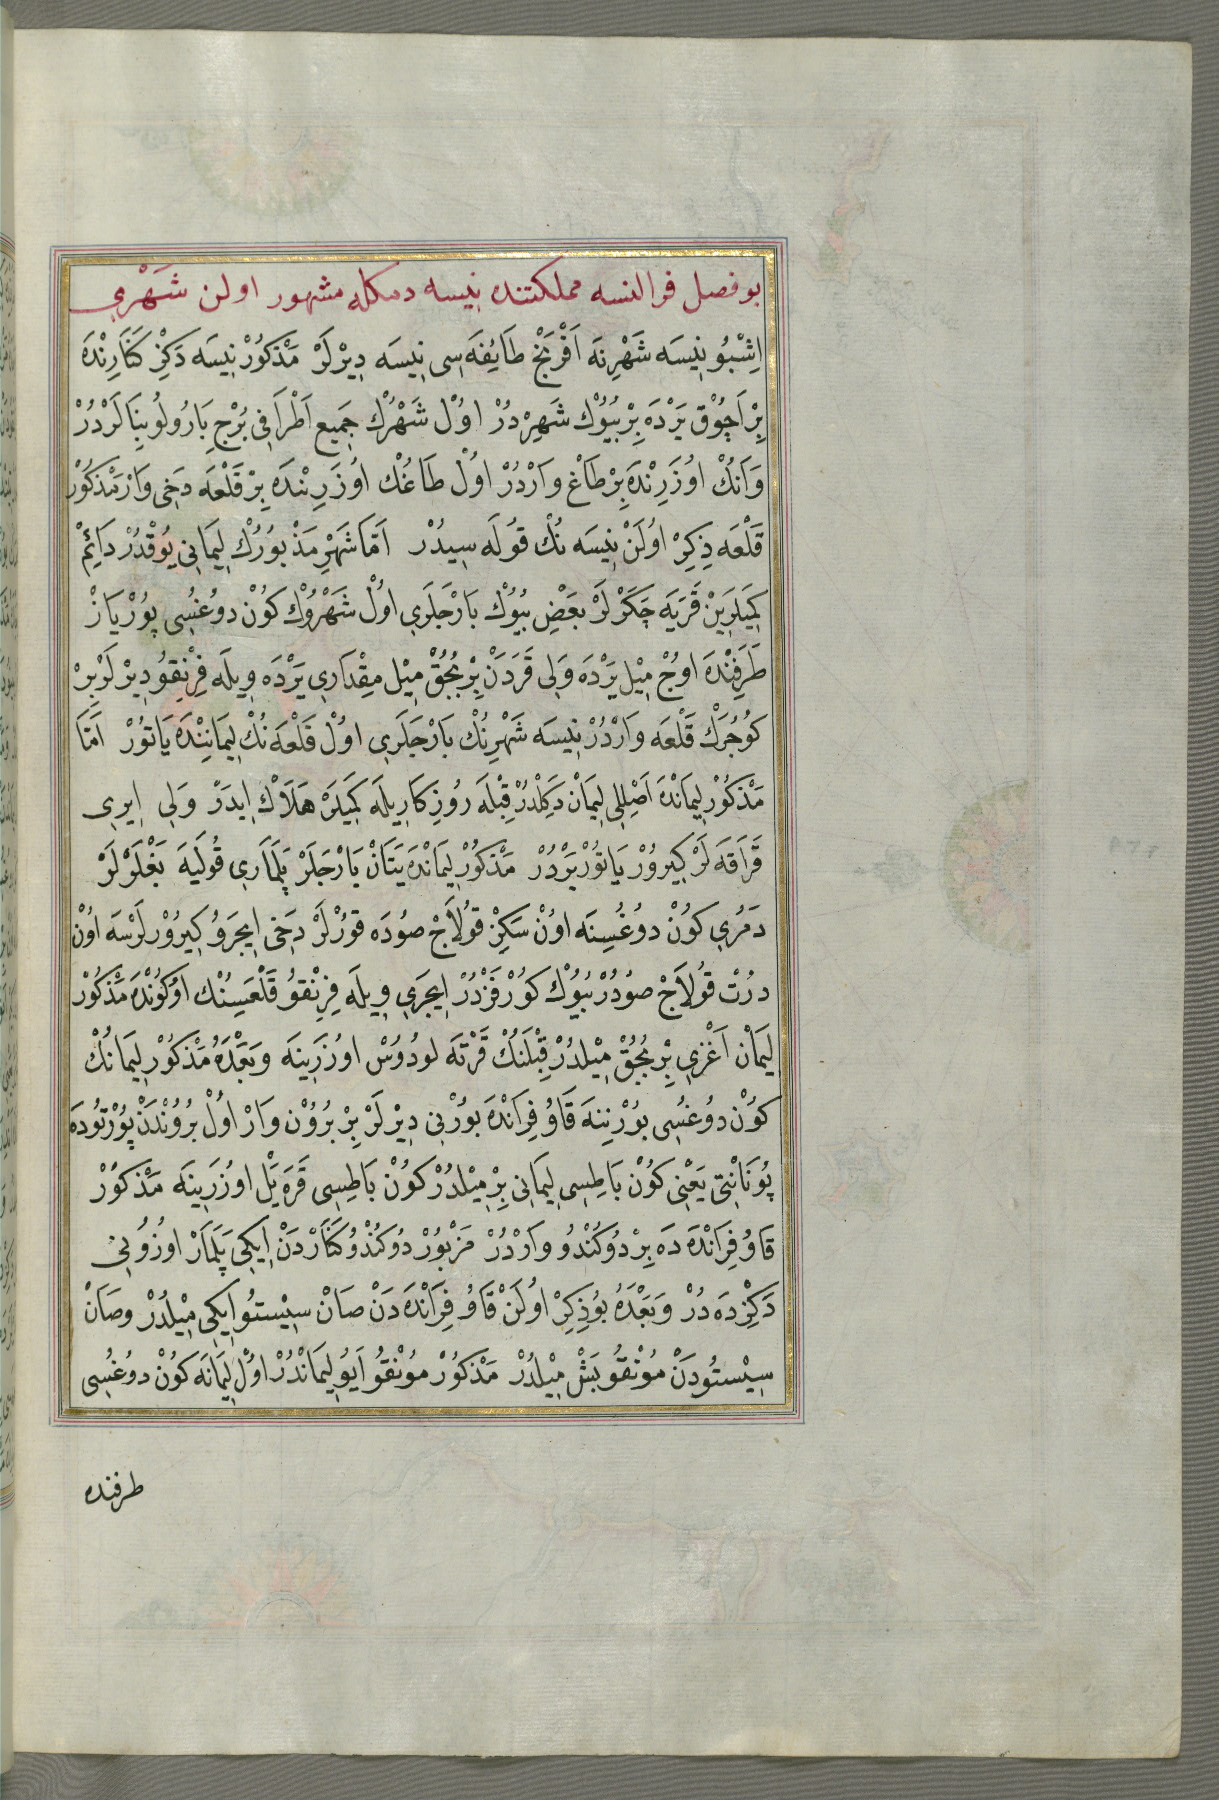 بو فصل فرالنسه مملكتنده نيسه دمكله مشهور اولن شَهْرِي
اِشْبُو نِيسَه شَهْرِنَه اَفْرَنْجْ طَايِفَه سِى نِيسَه دِيرْلَرْ مَذْكُورْ نِيسَه دَكِزْ كَنَارِنْدَه
بِرْ اَچُوْقْ يَرْدَه بِرْ بُيُوْكْ شَهِرْدُرْ اوُلْ شَهْرُكْ جَمِيع اَطْرَافِى بُرْجِ بَارُولُو بِنَالَرْدُرْ
وَاَنُكْ اوُزَرِنْدَه بِرْ طَاغْ وَارْدُرْ اوُلْ طَاغُكْ اوُزَرِنْدَه بِرْ قَلْعَه دَخِى وَارْ مَذْكُورْ
قَلْعَه ذِكِرْ اوُلَنْ نِيسَه نُكْ قوُلَه سِيدُرْ اَمَّا شَهْرِ مَذْبُورُكْ لِيمَانِى يُوْقْدُرْ دَايِمْ
كَمِيلَرِينْ قَرَيَه چَكَرْلَرْ بَعْضِ بُيُوْكْ بَارْجَلَرِي اوُلْ شَهْرُوْكْ كُونْ دوُغْسِى پوُرْيَازْ
طَرَفِنْدَه اوُجْ مِيْل يَرْدَه وَلِى قَرَدَنْ بِرْ بُجُقْ مِيْل مِقْدَارِي يَرْدَه وِيلَه فِرَنْقوُ دِيرْلَرْ بِرْ
كوُجُرَكْ قَلْعَه وَارْدُرْ نِيسَه شَهْرِنُكْ بَارْجَلَرِي اوُلْ قَلْعَه نُكْ لِيمَانِنْدَه يَاتُورْ اَمَّا
مَذْكُورْ لِيمَانْدَه اَصْلِلِى لِيمَانْ دَكِلْدُرْ قِبْلَه رُوزِكَارِيلَه كَمِيلَرْ هَلَاكْ اِيدَرْ وَلِى اِيرِى
قَرَاقَه لَرْ كِيرُورْ يَاتُورْ يَرْدُرْ مَذْكُورْ لِيمَانْدَه يَتَانْ بَارْجَلَرْ پَلَمَارِي قُولَيَه بَغْلَرْلَرْ
دَمُرِي كُونْ دوُغُسِنَه اوُنْ سَكِزْ قوُلَاجْ صوُدَه قوُرْلَرْ دَخِى اِيجَرُو كِيرُورْلَرْسَه اوُنْ
دُرُتْ قُولَاجْ صُودُرْ بُيُوْكْ كوُرْفَزْدُرْ اِيجَرِي وِيلَه فِرَنْقوُ قَلْعَسِنُكْ اوُكُونْدَه مَذْكُورْ
لِيمَانْ اَغْزِي بِرْ بُجُقْ مِيْلدُرْ قِبْلَنُكْ قَرْتَه لوُدُوُسْ اوُزَرِينَه وَبَعْدَهُ مَذْكُورْ لِيمَانُكْ
كُونْ دوُغُسِى بوُرْنِنَه قَاوُ فِرَانْدَه بوُرْنِى دِيرْلَرْ بِرْ بُرُوْنْ وَارْ اوُلْ بُرُونْدَنْ پوُرْتُودَه
پُونَانْتِى يَعْنِى كُونْ بَاطِسِى لِيمَانِى بِرْ مِيْلدُرْ كُونْ بَاطِسِى قَرَه يَلْ اوُزَرِينَه مَذْكُورْ
قَاوُ فِرَانْدَه دَه بِرْ دُوكُنْدُو وَارْدُرْ مَزْبُورْ دُوكُنْدُو كَنَارْدَنْ اِيكِى پَلَمَارْ اوُزُونِى
دَكِزْدَه دُرْ وَبَعْدَهُ بُوذِكِرْ اوُلَنْ قَاوُ فِرَانْدَه دَنْ صَانْ سِيْسْتوُ اِيكِى مِيْلدُرْ وصَانْ
سِيْستُودَنْ مُونْقوُ بَشْ مِيْلدُرْ مَذْكُورْ مُونْقُو اَيوُ لِيمَانْدُرْ اوُلْ لِيمَانَه كُونْ دوُغُسِى
طرفنده